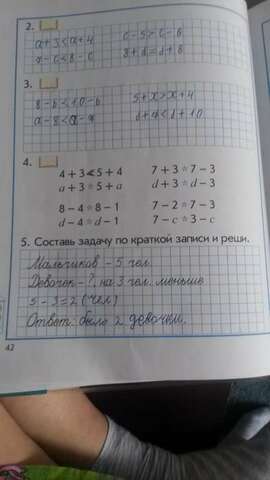 2.
a+3<a+4 c-5>c-6
7-c<8-c 8+d=d+8
3.
8-b<10-b 5+x>x+4
a-8<a-7 d+7<d+10
4.
4+3<5+4 7+3*7-3
a+3*5+a d+3*d-3
8-4*8-1 7-2*7-3
d-4*d-1 7-c*3-c
5. Составь задачу по краткой записи и реши.
Мальчиков - 5 чел.
Девочек - ?, на 3 чел. меньше
5-3=2 (чел)
Ответ: было 2 девочки.
42